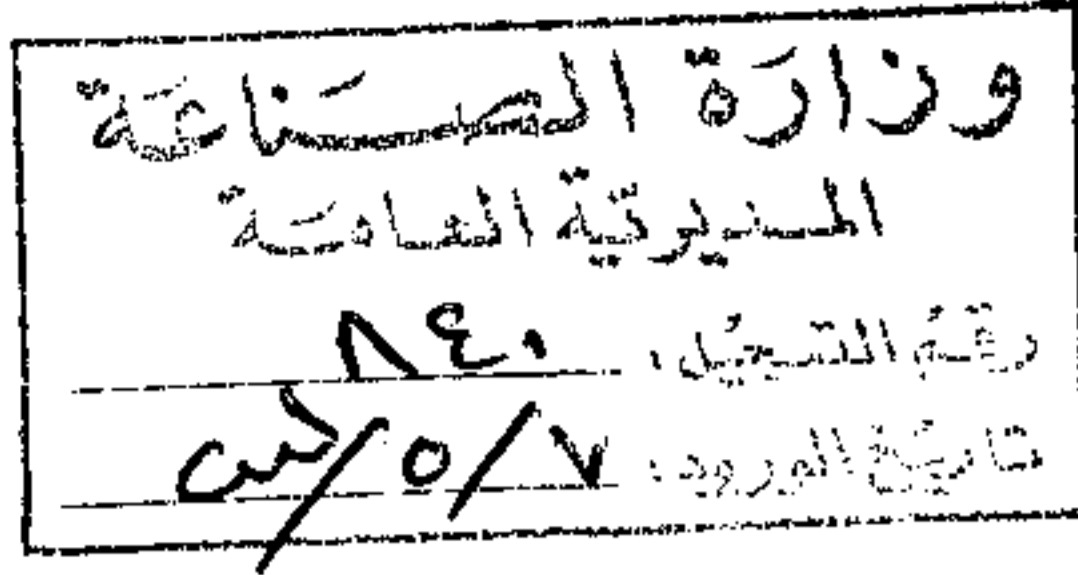 وزارة الصناعة
المديرية العامة
رقم التسجيل: ٨٤٠
تاريخ الورود: ٧/٥/